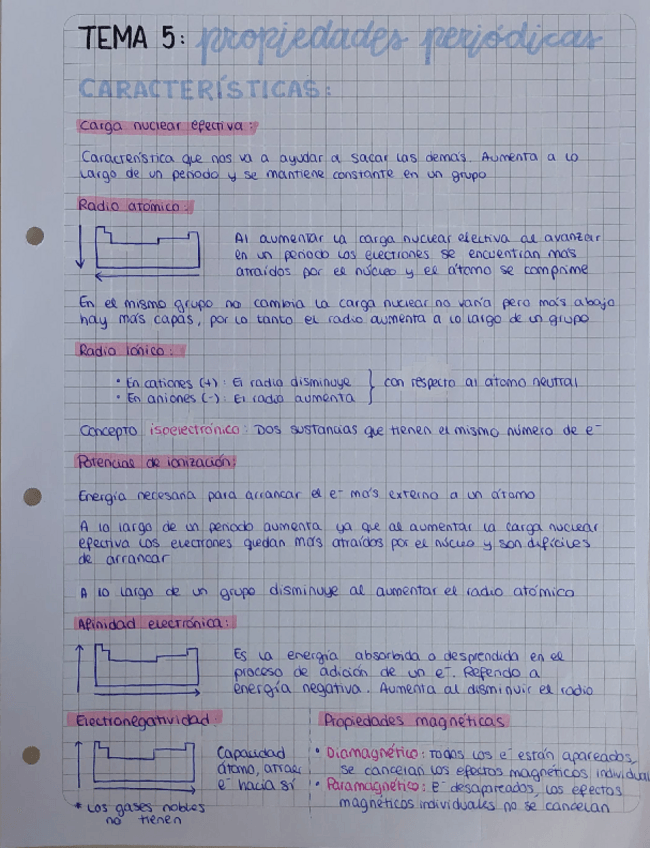 TEMA 5: propiedades periódicas
CARACTERÍSTICAS:
Carga nuclear efectiva:
Característica que nos va a ayudar a sacar las demás. Aumenta a lo
largo de un periodo y se mantiene constante en un grupo
Radio atómico:
Al aumentar la carga nuclear efectiva al avanzar
en un periodo los electrones se encuentran más
atraídos por el núcleo y el átomo se comprime
En el mismo grupo no cambia la carga nuclear no varía pero más abajo
hay más capas, por lo tanto el radio aumenta a lo largo de un grupo
Radio iónico:
• En cationes (+): El radio disminuye } con respecto al átomo neutral
• En aniones (-): El radio aumenta
Concepto isoelectrónico: Dos sustancias que tienen el mismo número de e⁻
Potencias de ionización:
Energía necesaria para arrancar el e⁻ más externo a un átomo
A lo largo de un periodo aumenta ya que al aumentar la carga nuclear
efectiva los electrones quedan más atraídos por el núcleo y son difíciles
de arrancar
A lo largo de un grupo disminuye al aumentar el radio atómico
Afinidad electrónica:
Es la energía absorbida o desprendida en el
proceso de adición de un e⁻. Referido a
energía negativa. Aumenta al disminuir el radio
Electronegatividad:
Capacidad
átomo, atraer
e⁻ hacia sí
* Los gases nobles
no tienen
Propiedades magnéticas
• Diamagnético: Todos los e⁻ están apareados,
se cancelan los efectos magnéticos individual
• Paramagnético: E⁻ desapareados, los efectos
magnéticos individuales no se cancelan